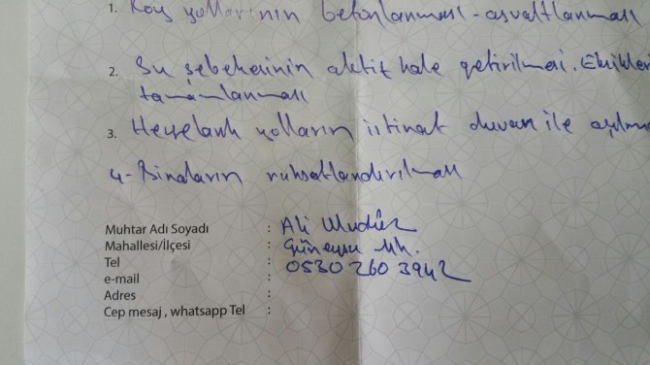 1. Köy yollarının betonlanması - asvaltlanması
2. Su şebekesinin aktif hale getirilmesi. Eksikleri
tamamlanması
3. Heyelanlı yolların istinat duvarı ile
4 - Binaların ruhsatlandırılması
Muhtar Adı Soyadı : Ali
Mahallesi/İlçesi : Güneysu Mh.
Tel : 0530 260 3942
e-mail :
Adres :
Cep mesaj , whatsapp Tel :